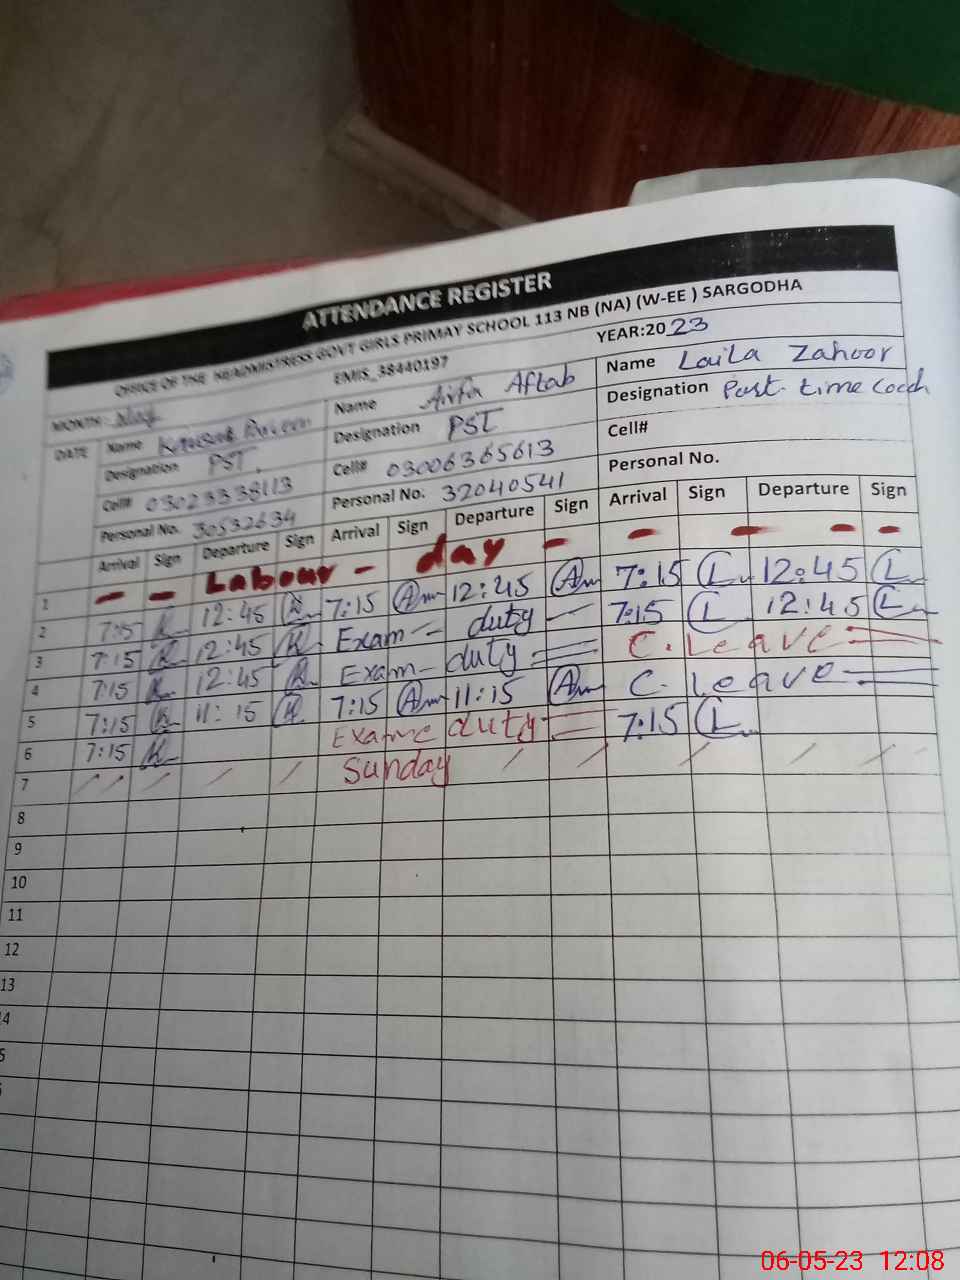 ATTENDANCE REGISTER
OFFICE OF THE HEADMISTRESS GOVT GIRLS PRIMAY SCHOOL 113 NB (NA) (W-EE ) SARGODHA
EMIS_38440197
MONTH: May YEAR:2023
DATE Name Kausar Name Aftab Name Laila Zahoor
Designation PST. Designation PST Designation Part time Coach
Cell# 03023338113 Cell# 03006365613 Cell#
Personal No. 30532634 Personal No. 32040541 Personal No.
Arrival Sign Departure Sign Arrival Sign Departure Sign Arrival Sign Departure Sign
1 - - Labour - day - - - - -
2 7:15 K 12:45 K 7:15 Am 12:45 Am 7:15 L 12:45 L
3 7:15 K 12:45 K Exam - duty - 7:15 L 12:45 L
4 7:15 K 12:45 K Exam - duty C. Leave
5 7:15 K 11:15 K 7:15 Am 11:15 Am C. Leave
6 7:15 K Exame duty 7:15 L
7 / / / / Sunday / / / / / /
8
9
10
11
12
13
06-05-23 12:08